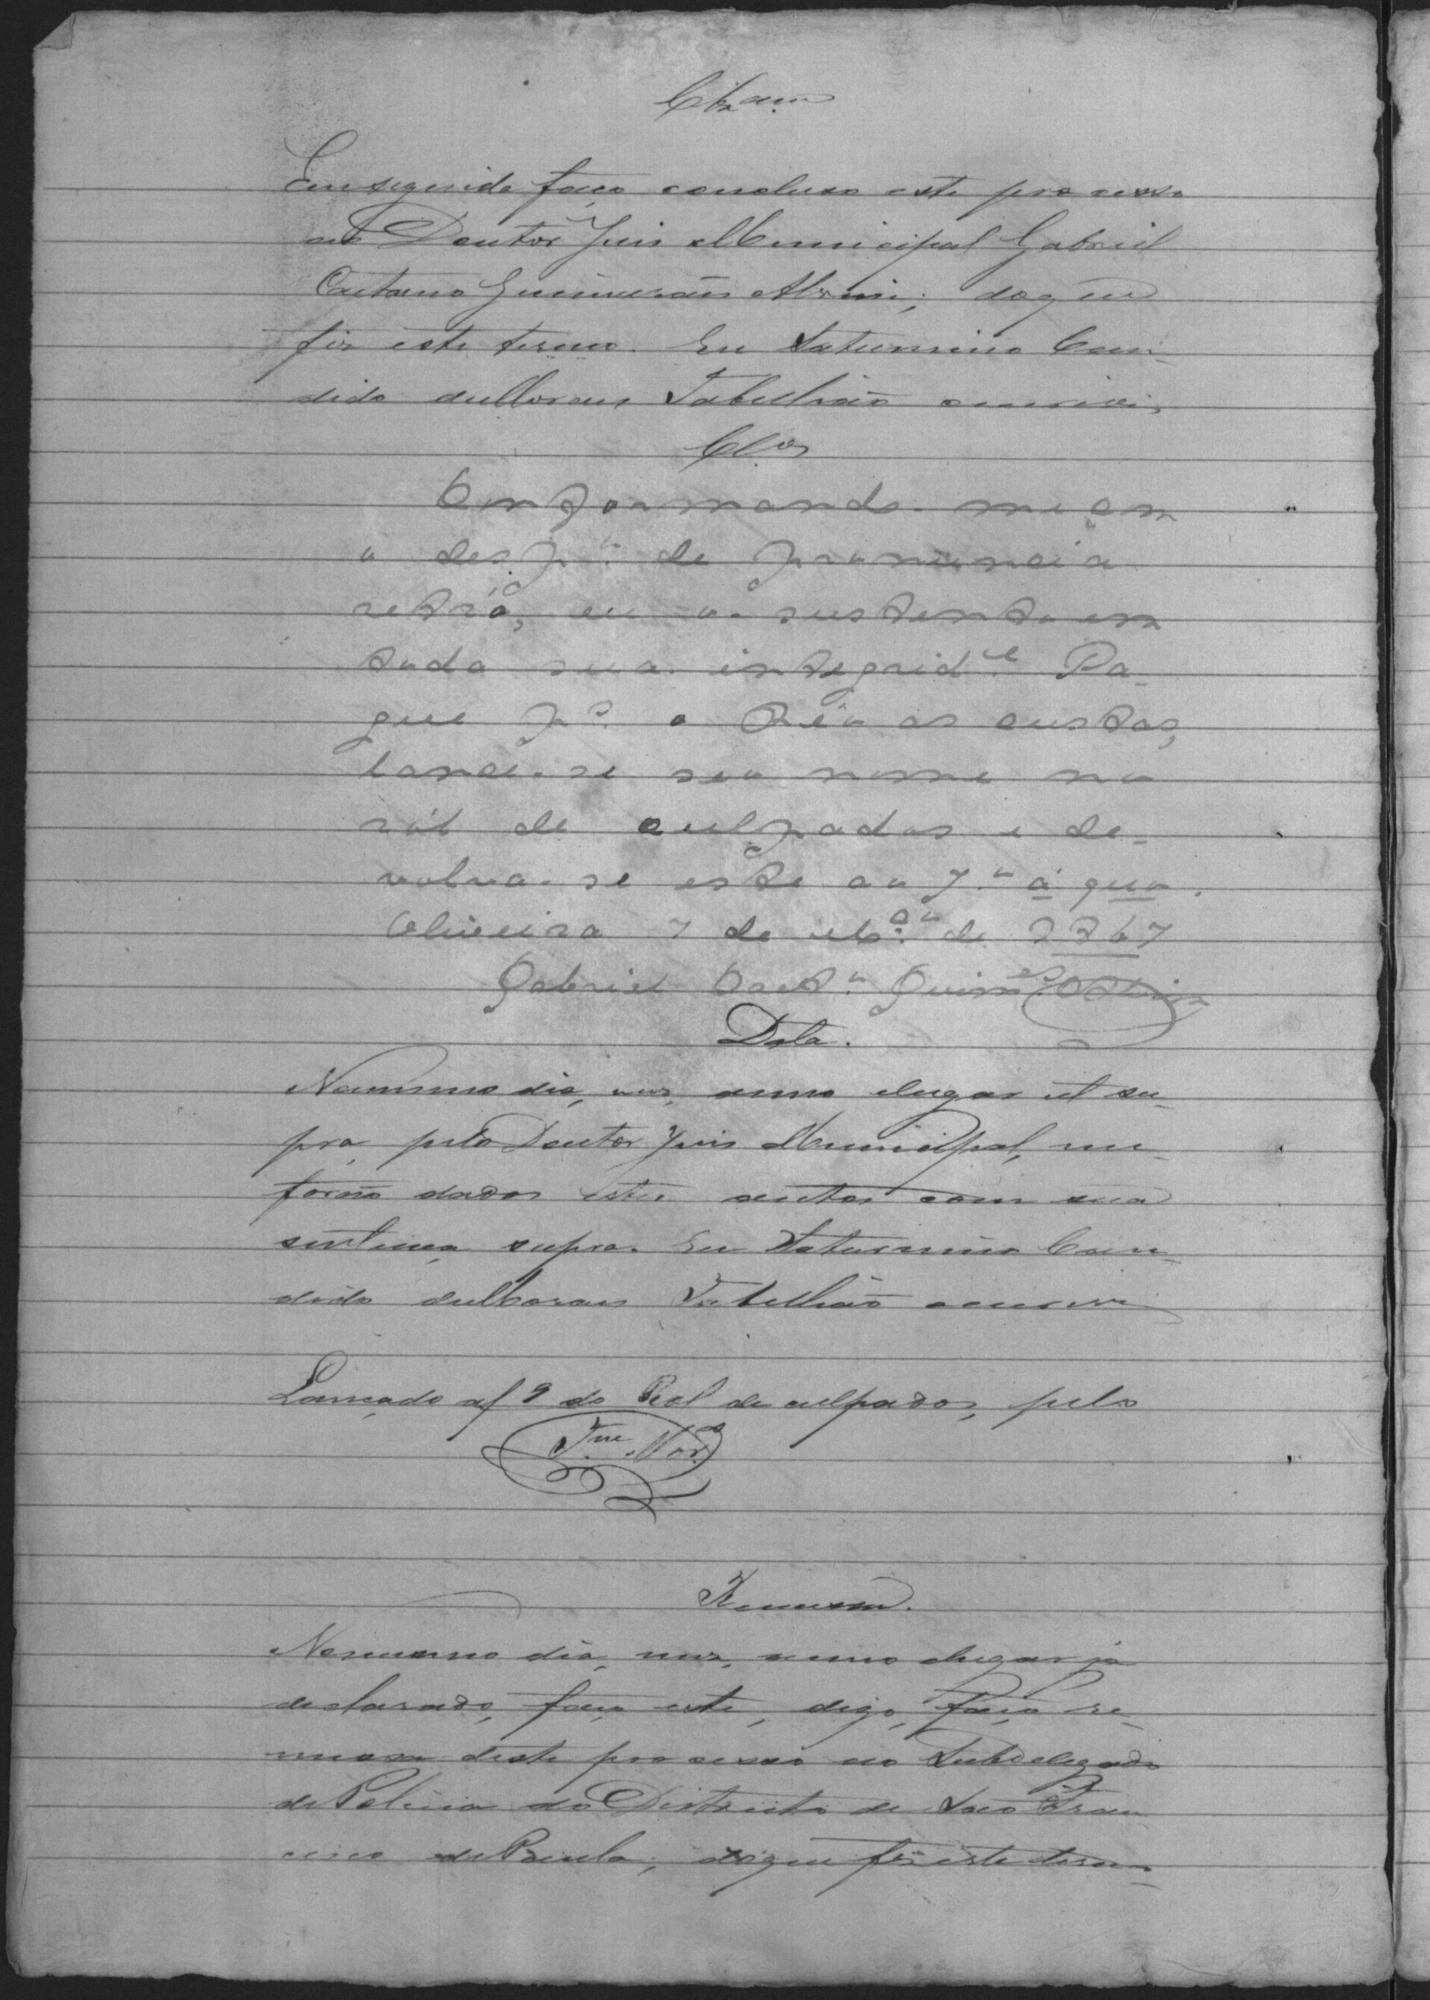 Clzam
Em seguida faço concluso este processo
ao Doutor Juis Municipal Gabriel
Caetano Guimarães Alvim; do q̃ eu
fis este termo. Eu Saturnino Can-
dido de Moraes Tabellião o escrivi,
Clos
Conformando-me com
o desp.o de pronuncia
retró, eu o sustento em
toda sua integrid.e Pa-
gue p.s o Réo as custas,
lance-se seo nome no
ról de culpados e de-
volva-se este ao J.o á quo.
Oliveira 7 de de 1867
Gabriel Caet.o Guim.es Alvim
Data.
No mesmo dia, mez, anno e lugar ut su-
pra, pelo Doutor Juis Municipal, me
forão dados estes autos com sua
sentença supra. Eu Saturnino Can-
dido de Moraes Tabellião o escrevi
Lançado a f 9 do Rol de culpados, pelo
T.me Mor.s
Remessa.
No mesmo dia, mez, anno e lugar já
declarado, faço este, digo, faço re-
messa deste processo ao Subdelegado
de Policia do Districto de São Fran-
cisco de Paula; do que fis este termo